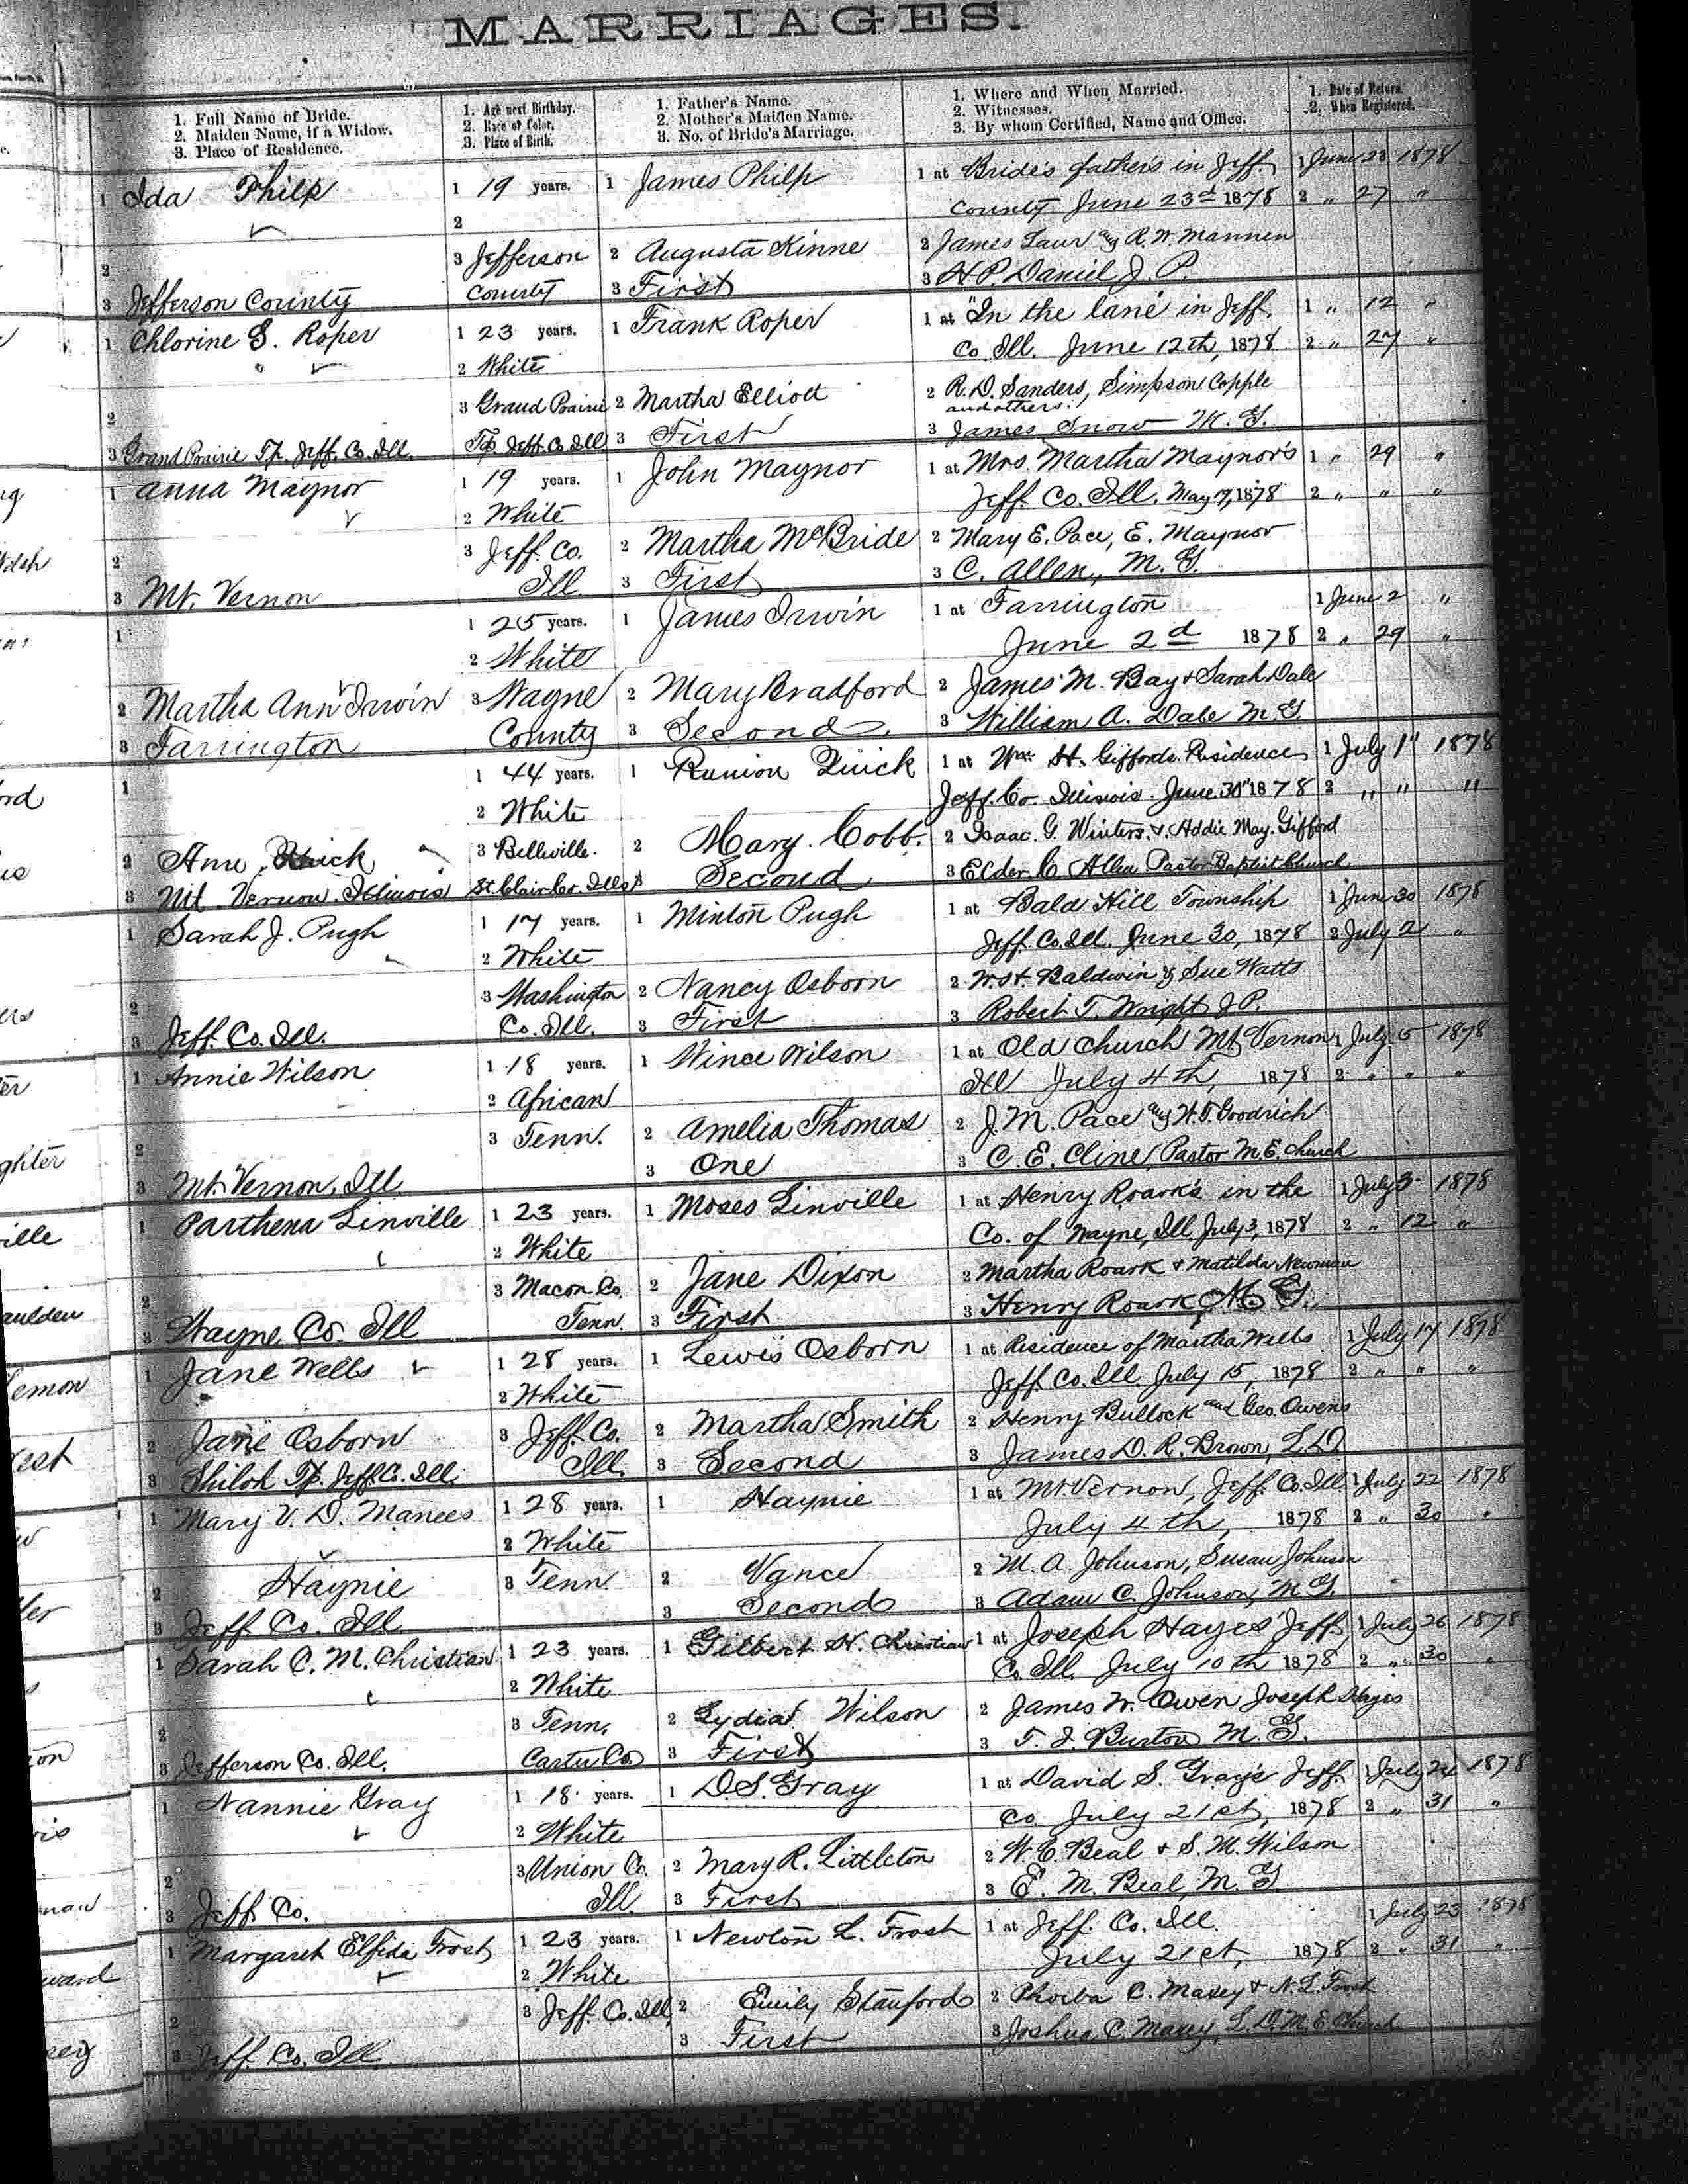 MARRIAGES.
1. Full Name of Bride.
2. Maiden Name, if a Widow.
3. Place of Residence.
1. Age next Birthday.
2. Race or Color.
3. Place of Birth.
1. Father's Name.
2. Mother's Maiden Name.
3. No. of Bride's Marriage.
1. Where and When Married.
2. Witnesses.
3. By whom Certified, Name and Office.
1. Date of Return.
2. When Registered.
1 Ida Philp
2
3 Jefferson County
1 19 years.
2
3 Jefferson
County
1 James Philp
2 Augusta Kinne
3 First
1 at Bride's father's in Jeff.
County June 23d 1878
2 James Laur and R. W. Mannen
3 H. P. Daniel J. P.
1 June 23 1878
2 " 27 "
1 Chlorine S. Roper
2
3 Grand Prairie Tp. Jeff. Co. Ill.
1 23 years.
2 White
3 Grand Prairie
Tp. Jeff. Co. Ill.
1 Frank Roper
2 Martha Elliott
3 First
1 at "In the lane" in Jeff.
Co. Ill. June 12th, 1878
2 R. D. Sanders, Simpson Copple
and others.
3 James Snow M. G.
1 " 12 "
2 " 27 "
1 Anna Maynor
2
3 Mt. Vernon
1 19 years.
2 White
3 Jeff. Co.
Ill
1 John Maynor
2 Martha McBride
3 First
1 at Mrs. Martha Maynor's
Jeff. Co. Ill. May 17, 1878
2 Mary E. Pace, E. Maynor
3 C. Allen, M. G.
1 " 29 "
2 " " "
1
2 Martha Ann Irwin
3 Farrington
1 25 years.
2 White
3 Wayne
County
1 James Irwin
2 Mary Bradford
3 Second
1 at Farrington
June 2d 1878
2 James M. Bay & Sarah Dale
3 William A. Dale M. G.
1 June 2 "
2 " 29 "
1
2 Ann Quick
3 Mt Vernon Illinois
1 44 years.
2 White
3 Belleville.
St. Clair Co. Ills
1 Runion Quick
2 Mary Cobb.
3 Second
1 at Wm. H. Giffords Residence
Jeff. Co. Illinois. June 30" 1878
2 Isaac G. Winters & Addie May Gifford
3 Elder C. Allen Pastor Baptist Church
1 July 1" 1878
2 " " "
1 Sarah J. Pugh
2
3 Jeff. Co. Ill.
1 17 years.
2 White
3 Washington
Co. Ill.
1 Minton Pugh
2 Nancy Osborn
3 First
1 at Bald Hill Township
Jeff. Co. Ill. June 30, 1878
2 W. H. Baldwin & Sue Watts
3 Robert T. Wright J. P.
1 June 30 1878
2 July 2 "
1 Annie Wilson
2
3 Mt. Vernon, Ill
1 18 years.
2 African
3 Tenn.
1 Wince Wilson
2 Amelia Thomas
3 One
1 at Old Church Mt Vernon
Ill July 4th, 1878
2 J. M. Pace and W. T. Goodrich
3 C. E. Cline, Pastor M. E. Church
1 July 5 1878
2 " " "
1 Parthena Linville
2
3 Wayne Co. Ill
1 23 years.
2 White
3 Macon Co.
Tenn.
1 Moses Linville
2 Jane Dixon
3 First
1 at Henry Roark's in the
Co. of Wayne, Ill. July 3, 1878
2 Martha Roark & Matilda Newman
3 Henry Roark, M. G.
1 July 3 1878
2 " 12 "
1 Jane Wells
2 Jane Osborn
3 Shiloh Tp. Jeff. Co. Ill.
1 28 years.
2 White
3 Jeff. Co.
Ill.
1 Lewis Osborn
2 Martha Smith
3 Second
1 at Residence of Martha Wells
Jeff. Co. Ill July 15, 1878
2 Henry Bullock and Geo. Owens
3 James D. R. Brown, L. D.
1 July 17 1878
2 " " "
1 Mary V. D. Manees
2 Haynie
3 Jeff Co. Ill
1 28 years.
2 White
3 Tenn.
1 Haynie
2 Vance
3 Second
1 at Mt. Vernon, Jeff. Co. Ill
July 4th, 1878
2 M. A. Johnson, Susan Johnson
3 Adam C. Johnson, M. G.
1 July 22 1878
2 " 30 "
1 Sarah C. M. Christian
2
3 Jefferson Co. Ill.
1 23 years.
2 White
3 Tenn.
Carter Co
1 Gilbert H. Christian
2 Lydia Wilson
3 First
1 at Joseph Hayes' Jeff.
Co. Ill. July 10th 1878
2 James W. Owen Joseph Hayes
3 T. J. Burton M. G.
1 July 26 1878
2 " 30 "
1 Nannie Gray
2
3 Jeff. Co.
1 18 years.
2 White
3 Union Co.
Ill.
1 D. S. Gray
2 Mary R. Littleton
3 First
1 at David S. Gray's Jeff.
Co. July 21st, 1878
2 W. C. Beal & S. M. Wilson
3 E. M. Beal, M. G.
1 July 24 1878
2 " 31 "
1 Margaret Elfida Frost
2
3 Jeff. Co. Ill.
1 23 years.
2 White
3 Jeff. Co. Ill.
1 Newton L. Frost
2 Emily Stanford
3 First
1 at Jeff. Co. Ill.
July 21st, 1878
2 Phoeba C. Maxey & N. L. Frost
3 Joshua C. Maxey, L. D. M. E. Church
1 July 23 1878
2 " 31 "